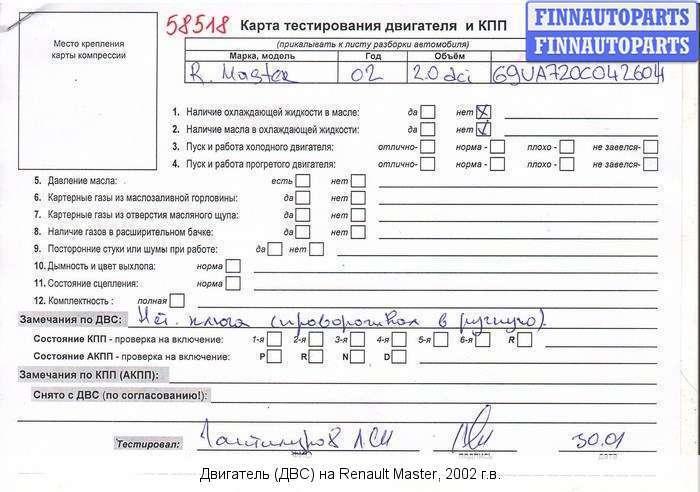 FINNAUTOPARTS
FINNAUTOPARTS
58518 Карта тестирования двигателя и КПП
(прикалывать к листу разборки автомобиля)
Место крепления
карты компрессии
Марка, модель Год Объём
R. Master 02 2.0 dci 69UA720C042604
1. Наличие охлаждающей жидкости в масле: да нет
2. Наличие масла в охлаждающей жидкости: да нет
3. Пуск и работа холодного двигателя: отлично- норма - плохо - не завелся-
4. Пуск и работа прогретого двигателя: отлично- норма - плохо - не завелся-
5. Давление масла: есть нет
6. Картерные газы из маслозаливной горловины: да нет
7. Картерные газы из отверстия масляного щупа: да нет
8. Наличие газов в расширительном бачке: да нет
9. Посторонние стуки или шумы при работе: да нет
10. Дымность и цвет выхлопа: норма
11. Состояние сцепления: норма
12. Комплектность : полная
Замечания по ДВС: Нет ключа (проворотили в ручную).
Состояние КПП - проверка на включение: 1-я 2-я 3-я 4-я 5-я 6-я R
Состояние АКПП - проверка на включение: P R N D
Замечания по КПП (АКПП):
Снято с ДВС (по согласованию!):
Тестировал: 30.01
ФИО подпись дата
Двигатель (ДВС) на Renault Master, 2002 г.в.